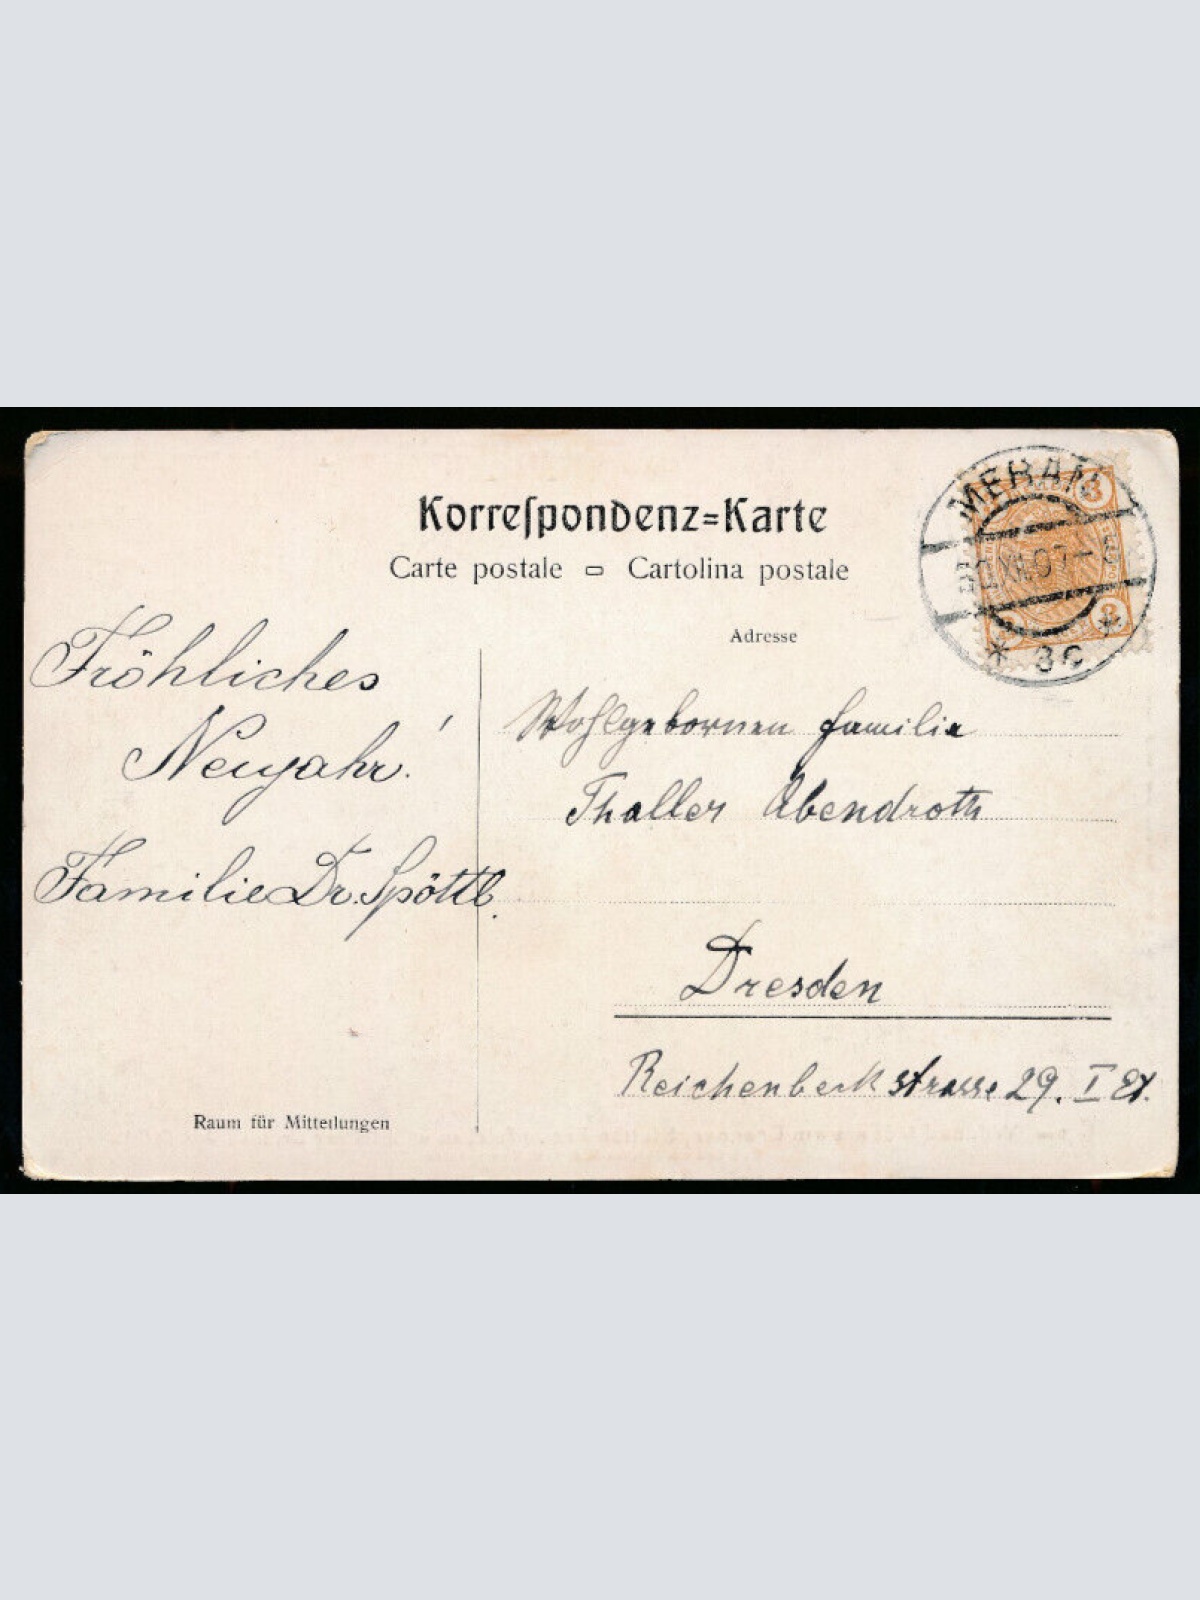 Korreſpondenz=Karte
Carte postale Cartolina postale
Adresse
MERAN
3
3
XII.07
* 3c *
Fröhliches
Neujahr!
Familie Dr. Spöttl.
Wohlgebornen Familie
Thaller Abendroth
Dresden
Reichenbachstrasse 29. I Et.
Raum für Mitteilungen